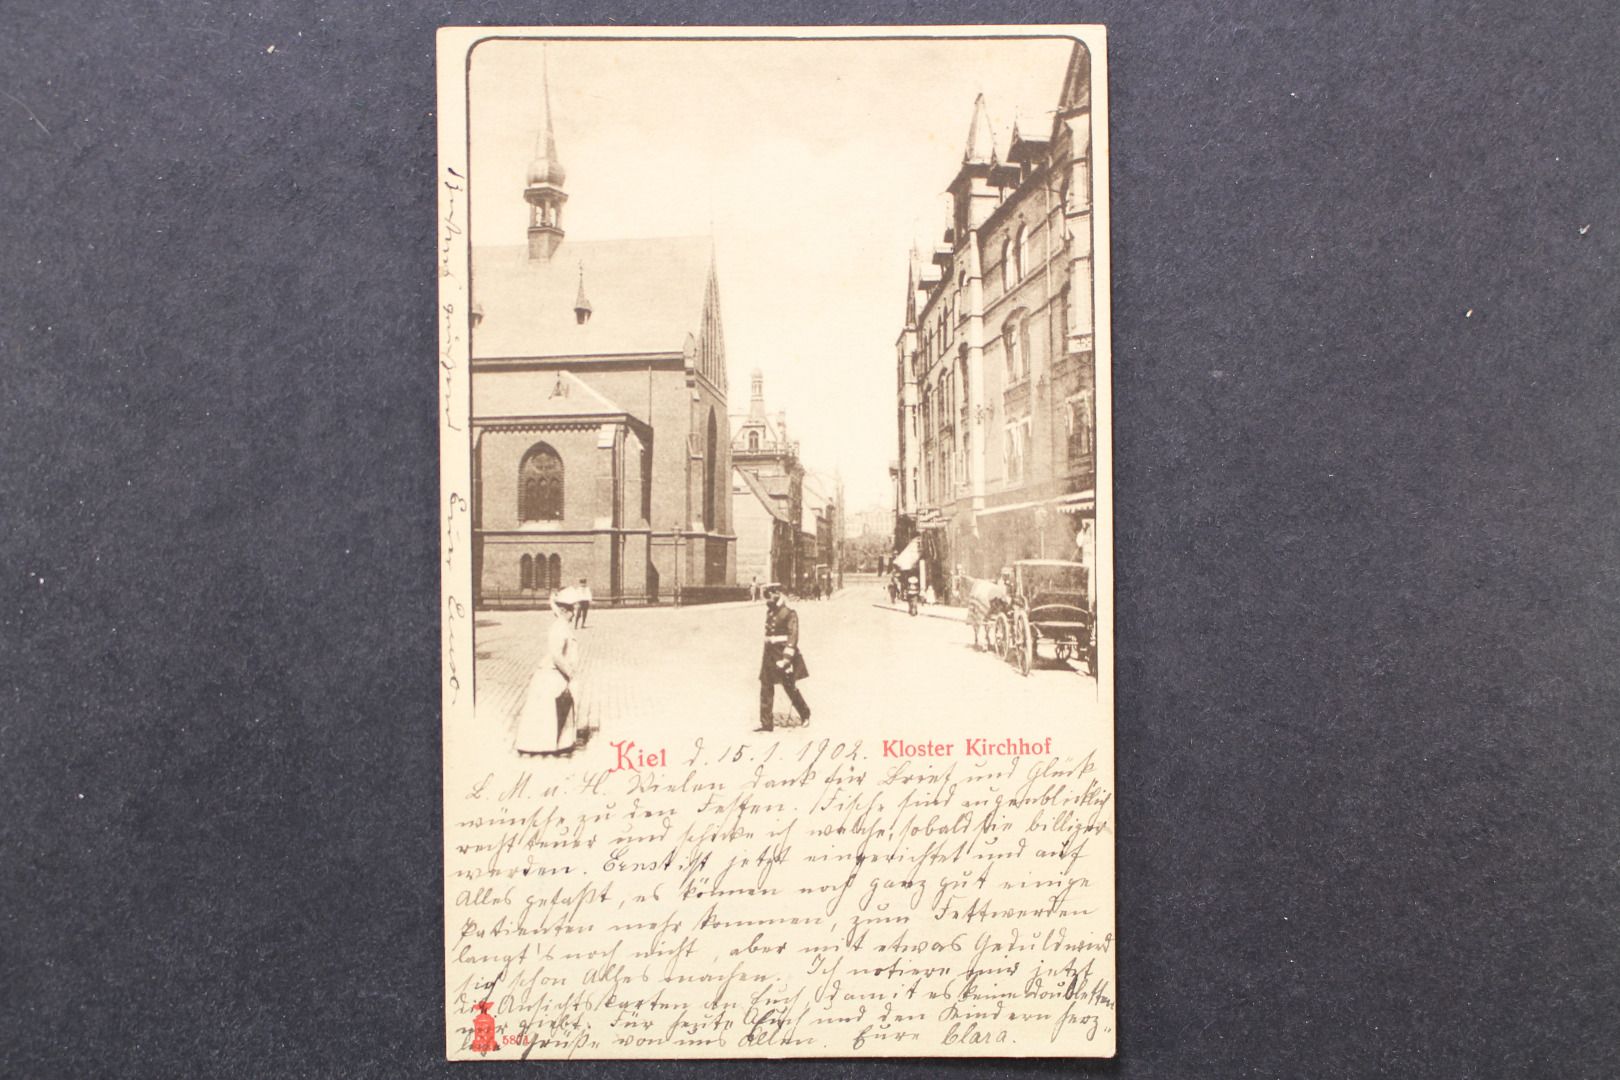 Kiel d. 15.1.1902. Kloster Kirchhof
L. M. u. H. Vielen Dank für Brief und Glück
wünsche zu den Festen. Fische sind augenblicklich
recht teuer und schicke ich welche, sobald sie billiger
werden. Ernst ist jetzt eingerichtet und auf
Alles gefaßt, es können noch ganz gut einige
Patienten mehr kommen, zum Fettwerden
langt's noch nicht, aber mit etwas Geduld wird
sich schon Alles machen. Ich notiere mir jetzt
die Ansichtskarten an Euch, damit es keine Doubletten
mehr giebt. Für heute Euch und den Kindern herz-
liche Grüße von uns Allen. Eure Clara.
5801